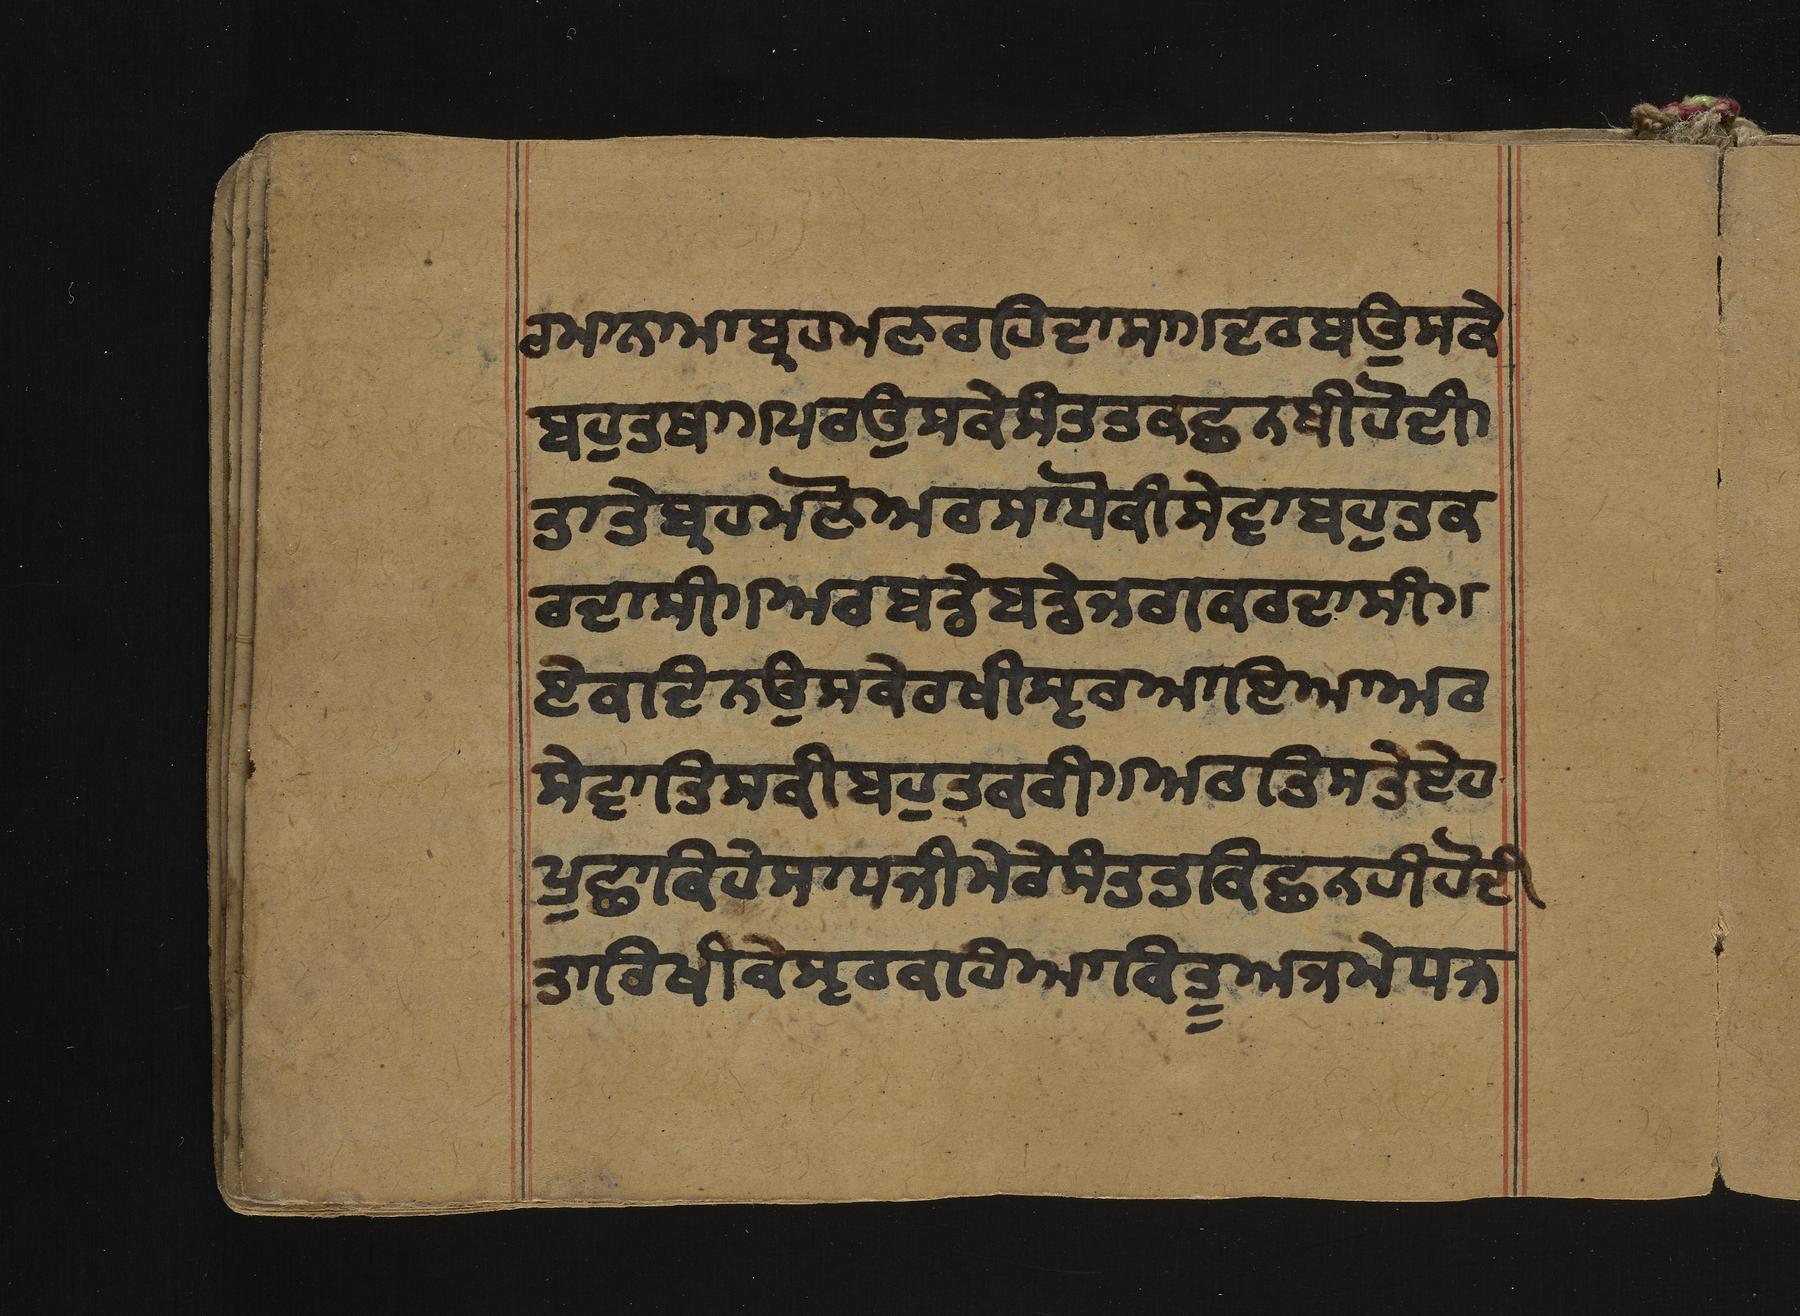 ਰਮਾਨਾਮਾਬ੍ਰਹਮਣਰਹਿਦਾਸਾ।ਦਰਬਉਸਕੇ
ਬਹੁਤਥਾ।ਪਰਉਸਕੇਸੰਤਤਕਛੁਨਥੀਹੋਦੀ
ਤਾਤੇਬ੍ਰਹਮਣੋਅਰਸਾਧੋਕੀਸੇਵਾਬਹੁਤਕ
ਰਦਾਸੀ।ਅਰਬਡੇਬਡੇਜਗਕਰਦਾਸੀ।
ਏਕਦਿਨਉਸਕੇਰਖੀਸ੍ਵਰਆਇਆਅਰ
ਸੇਵਾਤਿਸਕੀਬਹੁਤਕਰੀ।ਅਰਤਿਸਤੇਏਹ
ਪੁਛਾਕਿਹੇਸਾਧਜੀਮੇਰੇਸੰਤਤਕਿਛੁਨਹੀਹੋਦੀ
ਤਾਰਿਖੀਕੇਸ੍ਵਰਕਹਿਆਕਿਤੂਅਜਮੇਧਜ